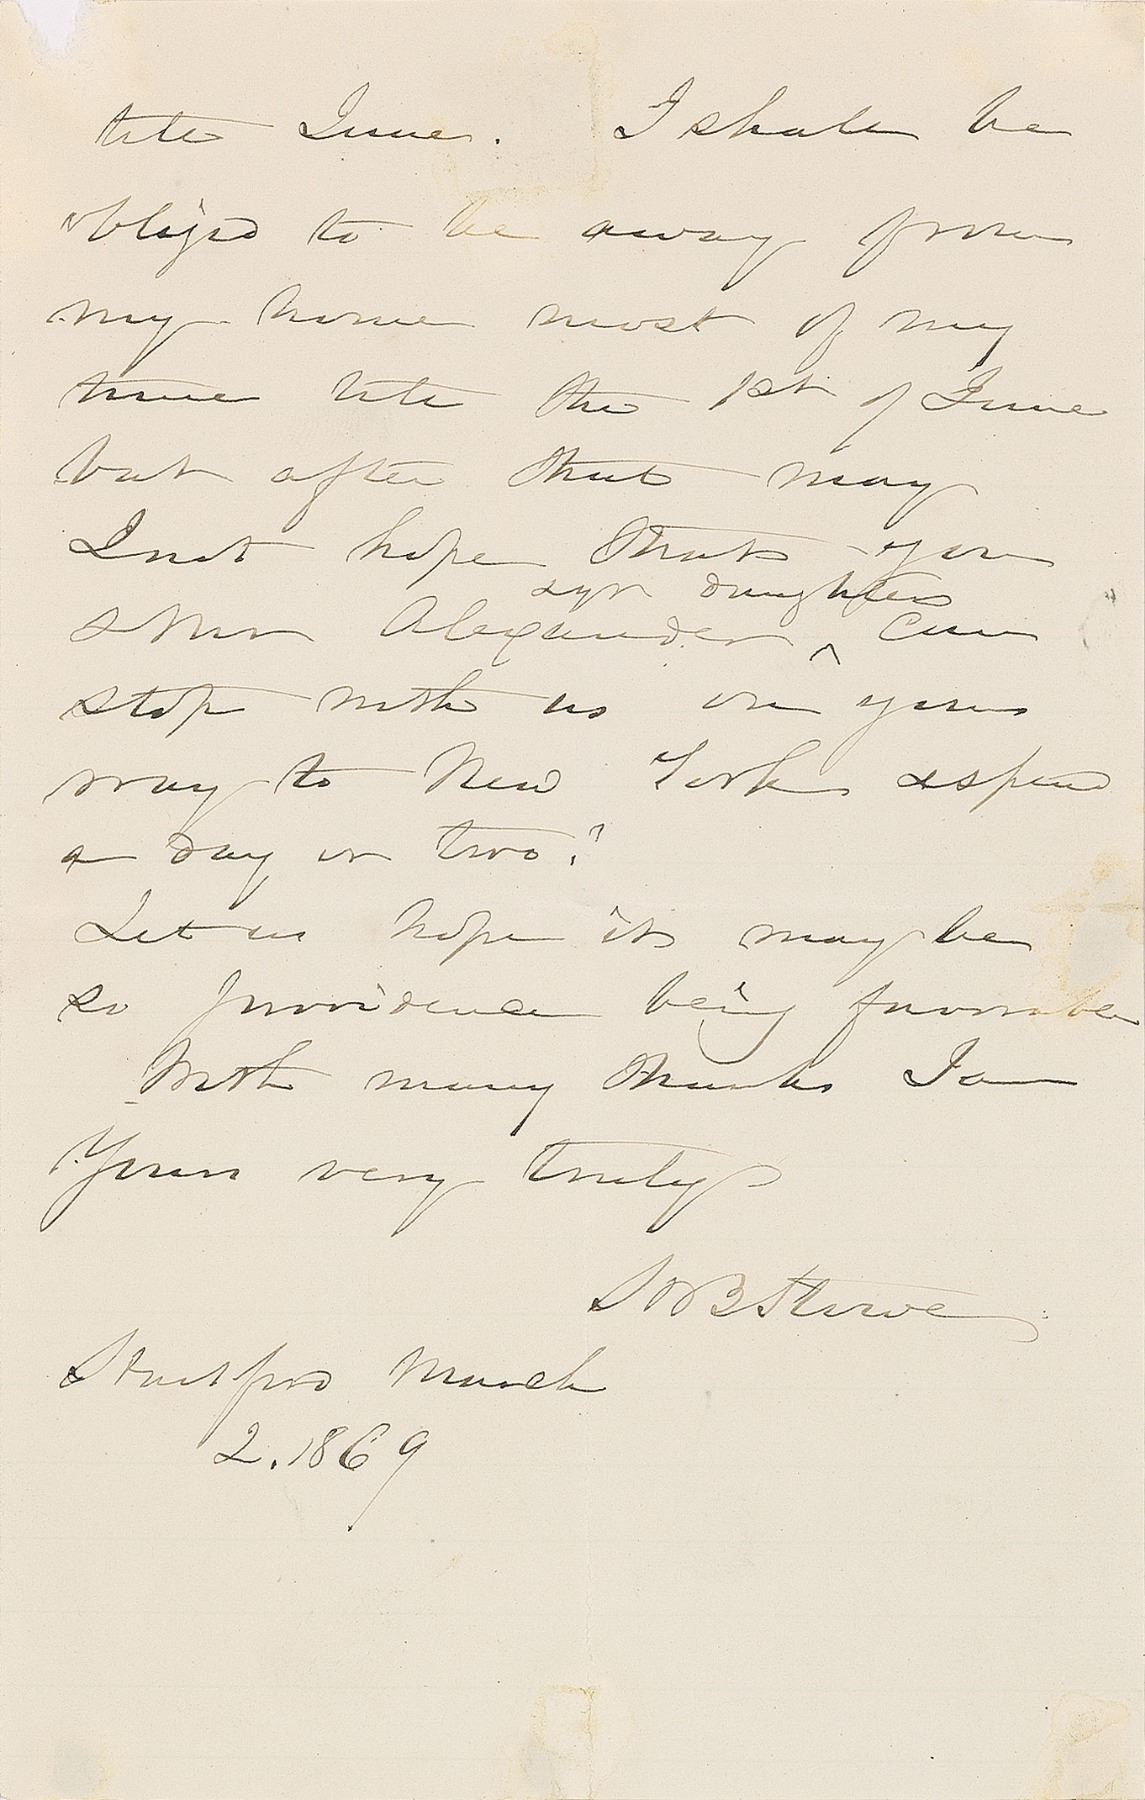 till June. I shall be
obliged to be away from
my home most of my
time till the 1st of June
but after that may
I not hope that you
& yr daughters
& Mrs Alexander ^ can
stop with us on your
way to New York & spend
a day or two?
Let us hope it may be
so providence being favorable
With many thanks I am
Yours very truly
H B Stowe
Hartford March
2. 1869